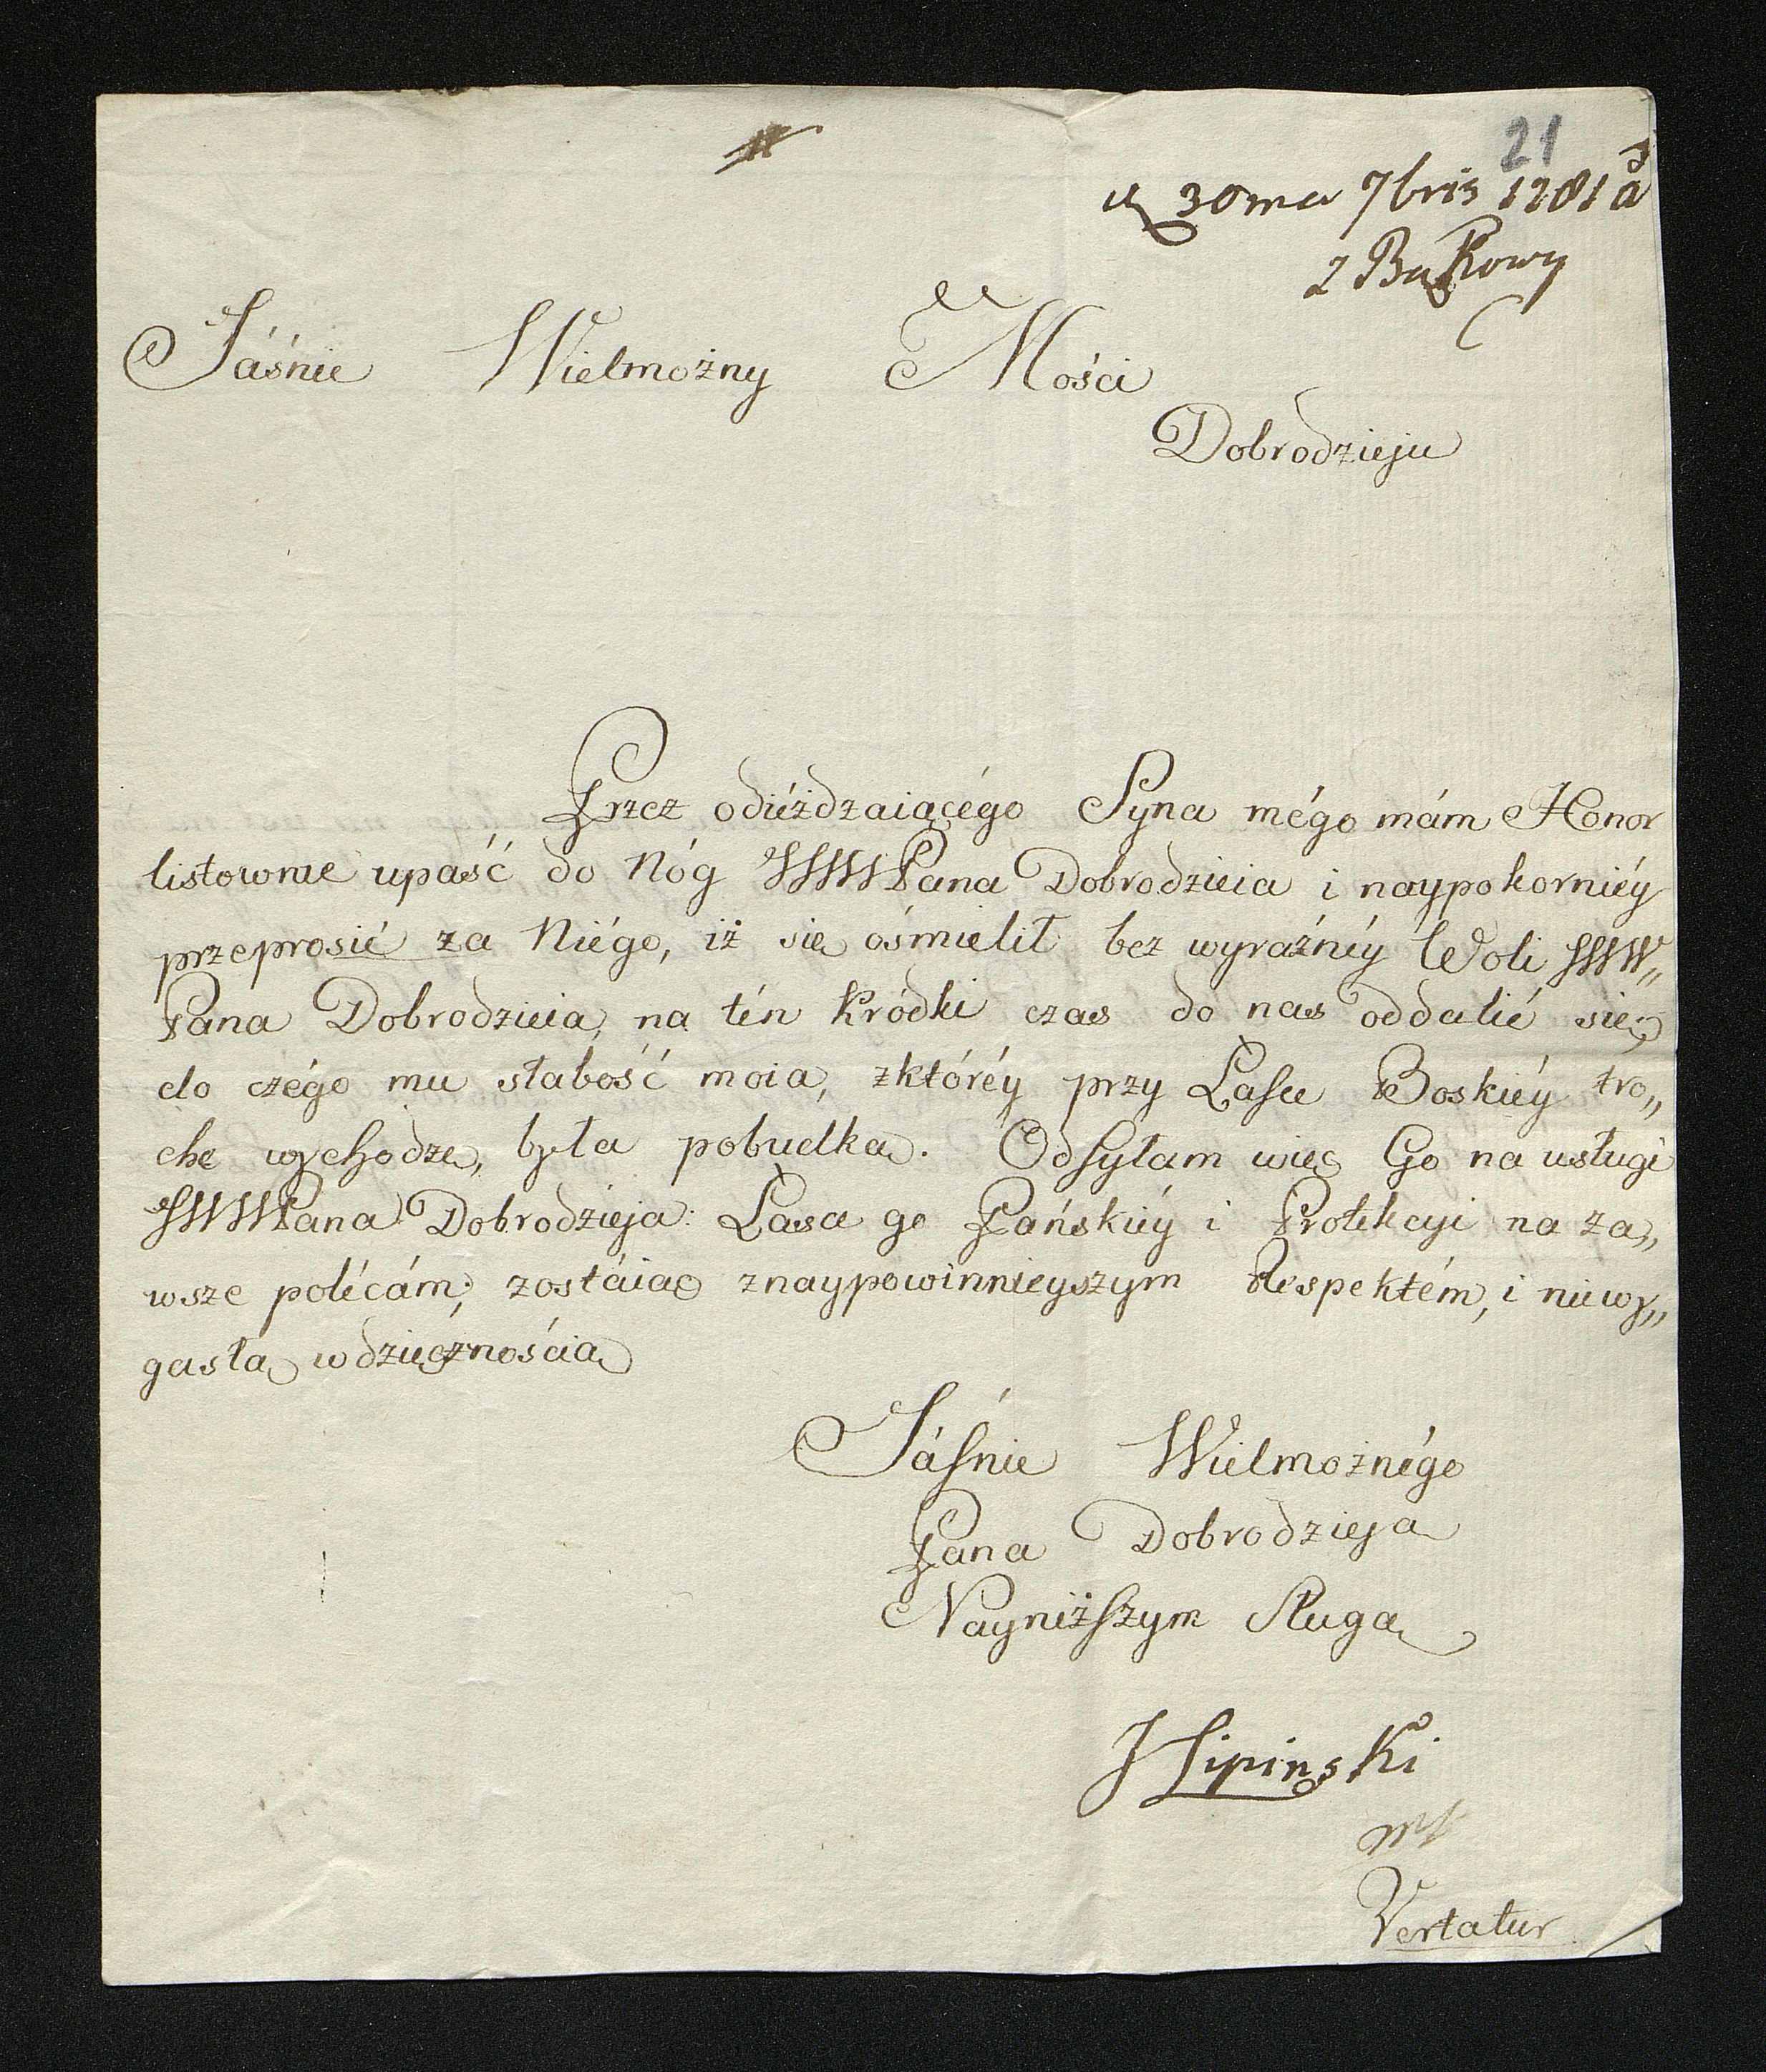 21
30ma 7bris 1781 a
z Bukowy
Jáśnie Wielmożny Mości
Dobrodzieju
Przez odiéżdzaiącégo Syna mégo mám Honor
listownie upaść do Nóg JWWPana Dobrodzieia i naypokorniéy
przeprosić za Niégo, iż się ośmielił bez wyraźnéy Woli JWW„
Pana Dobrodzieia, na tén kródki czas do nas oddalić się,
do czégo mu słabość moia, zktóréy przy Łasce Boskiéy tro„
che wychodzę, była pobudką. Odsyłam więc Go na usługi
JWWPana Dobrodzieja: Łasce go Pańskiéy i Protekcyi na za„
wsze polécám, zostáiąc znaypowinnieyszym Respektém, i niewy„
gasłą wdzięcznością
Jáśnie Wielmożnégo
Pana Dobrodzieja
Nayniższym Sługą
J Lipinski
mp
Vertatur